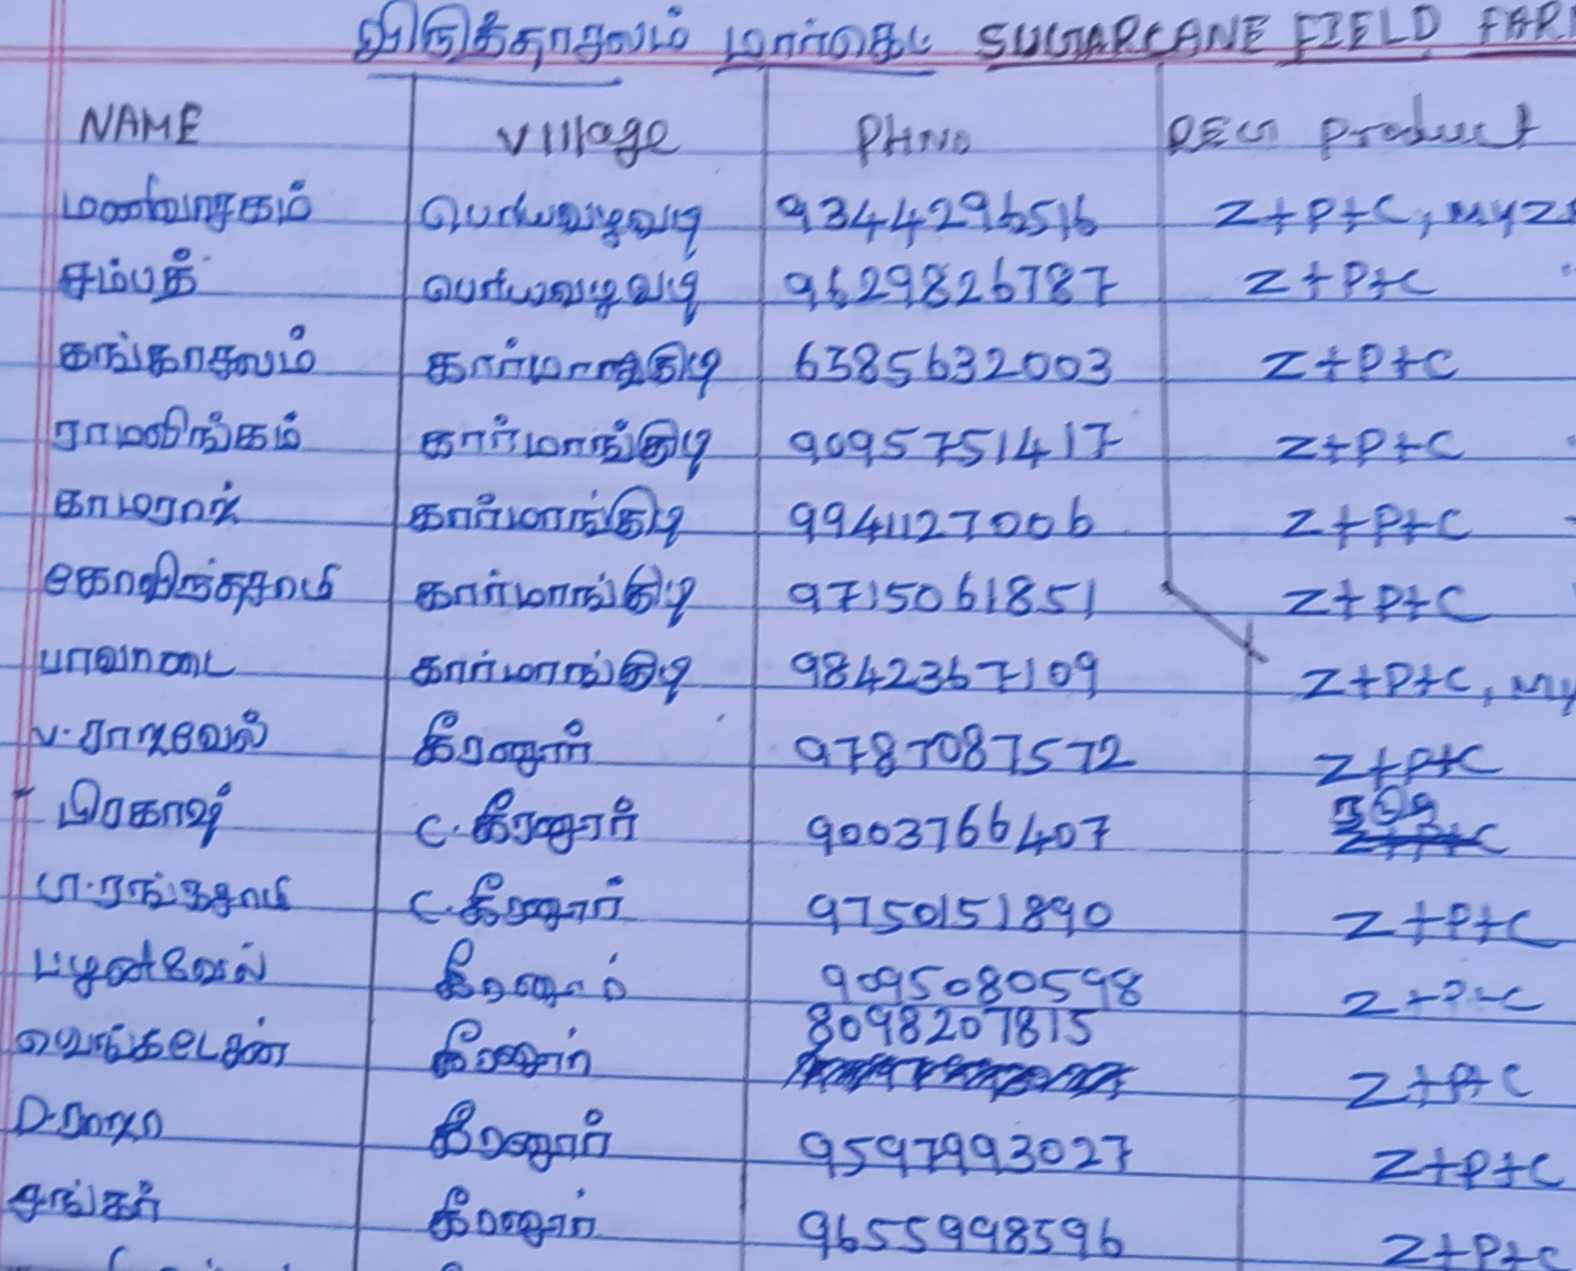 விருத்தாசலம் மார்கெட் SUGARCANE FIELD FAR
NAME Village PHNO REG Product
மணிவாசகம் பெரியவடிவாடி 9344296516 Z+P+C, MYZ
சம்பத் பெரியவடிவாடி 9629826787 Z+P+C
கங்காசலம் கார்மாங்குடி 6385632003 Z+P+C
ராமலிங்கம் கார்மாங்குடி 9095751417 Z+P+C
காமராஜ் கார்மாங்குடி 9941127006 Z+P+C
கோவிந்தசாமி கார்மாங்குடி 9715061851 Z+P+C
பாவாடை கார்மாங்குடி 9842367109 Z+P+C, MY
V.ராஜவேல் கீரனூர் 9787087572 Z+P+C
பிரகாஷ் C.கீரனூர் 9003766407
ரங்கசாமி C.கீரனூர் 9750151890 Z+P+C
பழனிவேல் கீரனூர் 9095080598 Z+P+C
வெங்கடேசன் கீரனூர் 8098207815 Z+P+C
D.ராஜா கீரனூர் 9597993027 Z+P+C
சங்கர் கீரனூர் 9655998596 Z+P+C